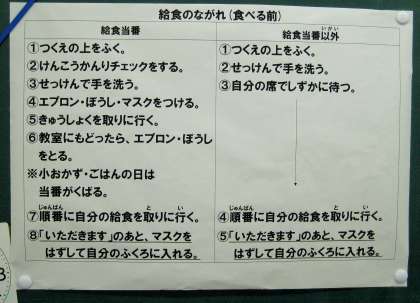 給食のながれ(食べる前)
給食当番
①つくえの上をふく。
②けんこうかんりチェックをする。
③せっけんで手を洗う。
④エプロン・ぼうし・マスクをつける。
⑤きゅうしょくを取りに行く。
⑥教室にもどったら、エプロン・ぼうし
をとる。
※小おかず・ごはんの日は
当番がくばる。
⑦順番に自分の給食を取りに行く。
⑧「いただきます」のあと、マスクを
はずして自分のふくろに入れる。
給食当番以外
①つくえの上をふく。
②せっけんで手を洗う。
③自分の席でしずかに待つ。
④順番に自分の給食を取りに行く。
⑤「いただきます」のあと、マスクを
はずして自分のふくろに入れる。